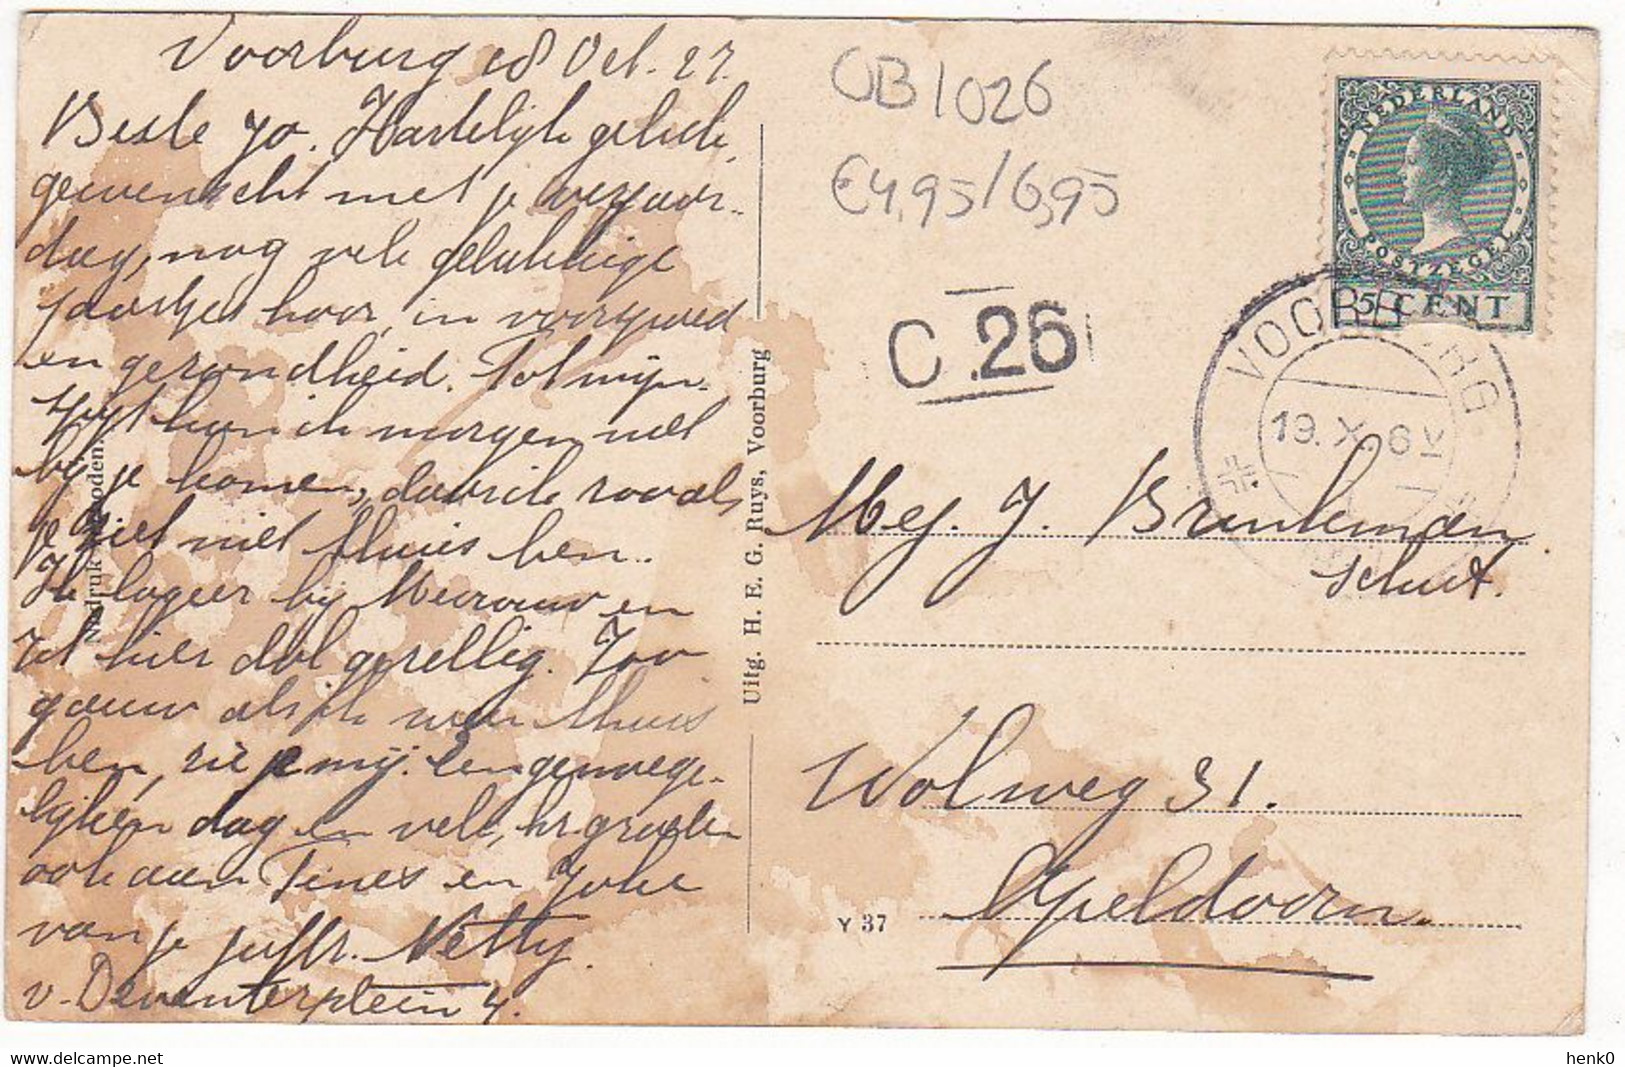 Voorburg 18 Oct. 27.
Beste Jo. Hartelijk gelukk.
gewenscht met je verjaar-
dag, nog vele gelukkige
jaartjes hoor, in voorspoed
en gezondheid. Tot mijn
spijt kan ik morgen niet
bij je komen, daar ik zooals
je ziet niet thuis ben.
Ik logeer bij Mevrouw en
't hier dol gezellig. Zoo
gauw als ik weer thuis
ben, zie je mij. Een genoege-
lijken dag en vele, hr. groeten
ook aan Tines en Joke
van je juffr. Netty.
v. Deventerplein 4.
Nadruk verboden.
Uitg. H. E. G. Ruys, Voorburg
OB1026
€4,95/6,95
C.26
NEDERLAND
POSTZEGEL
5 CENT
VOORBURG.
19.X. 6V
Mej. J. Brinkman
Schut.
Wolweg 31.
Apeldoorn.
Y 37
henk0